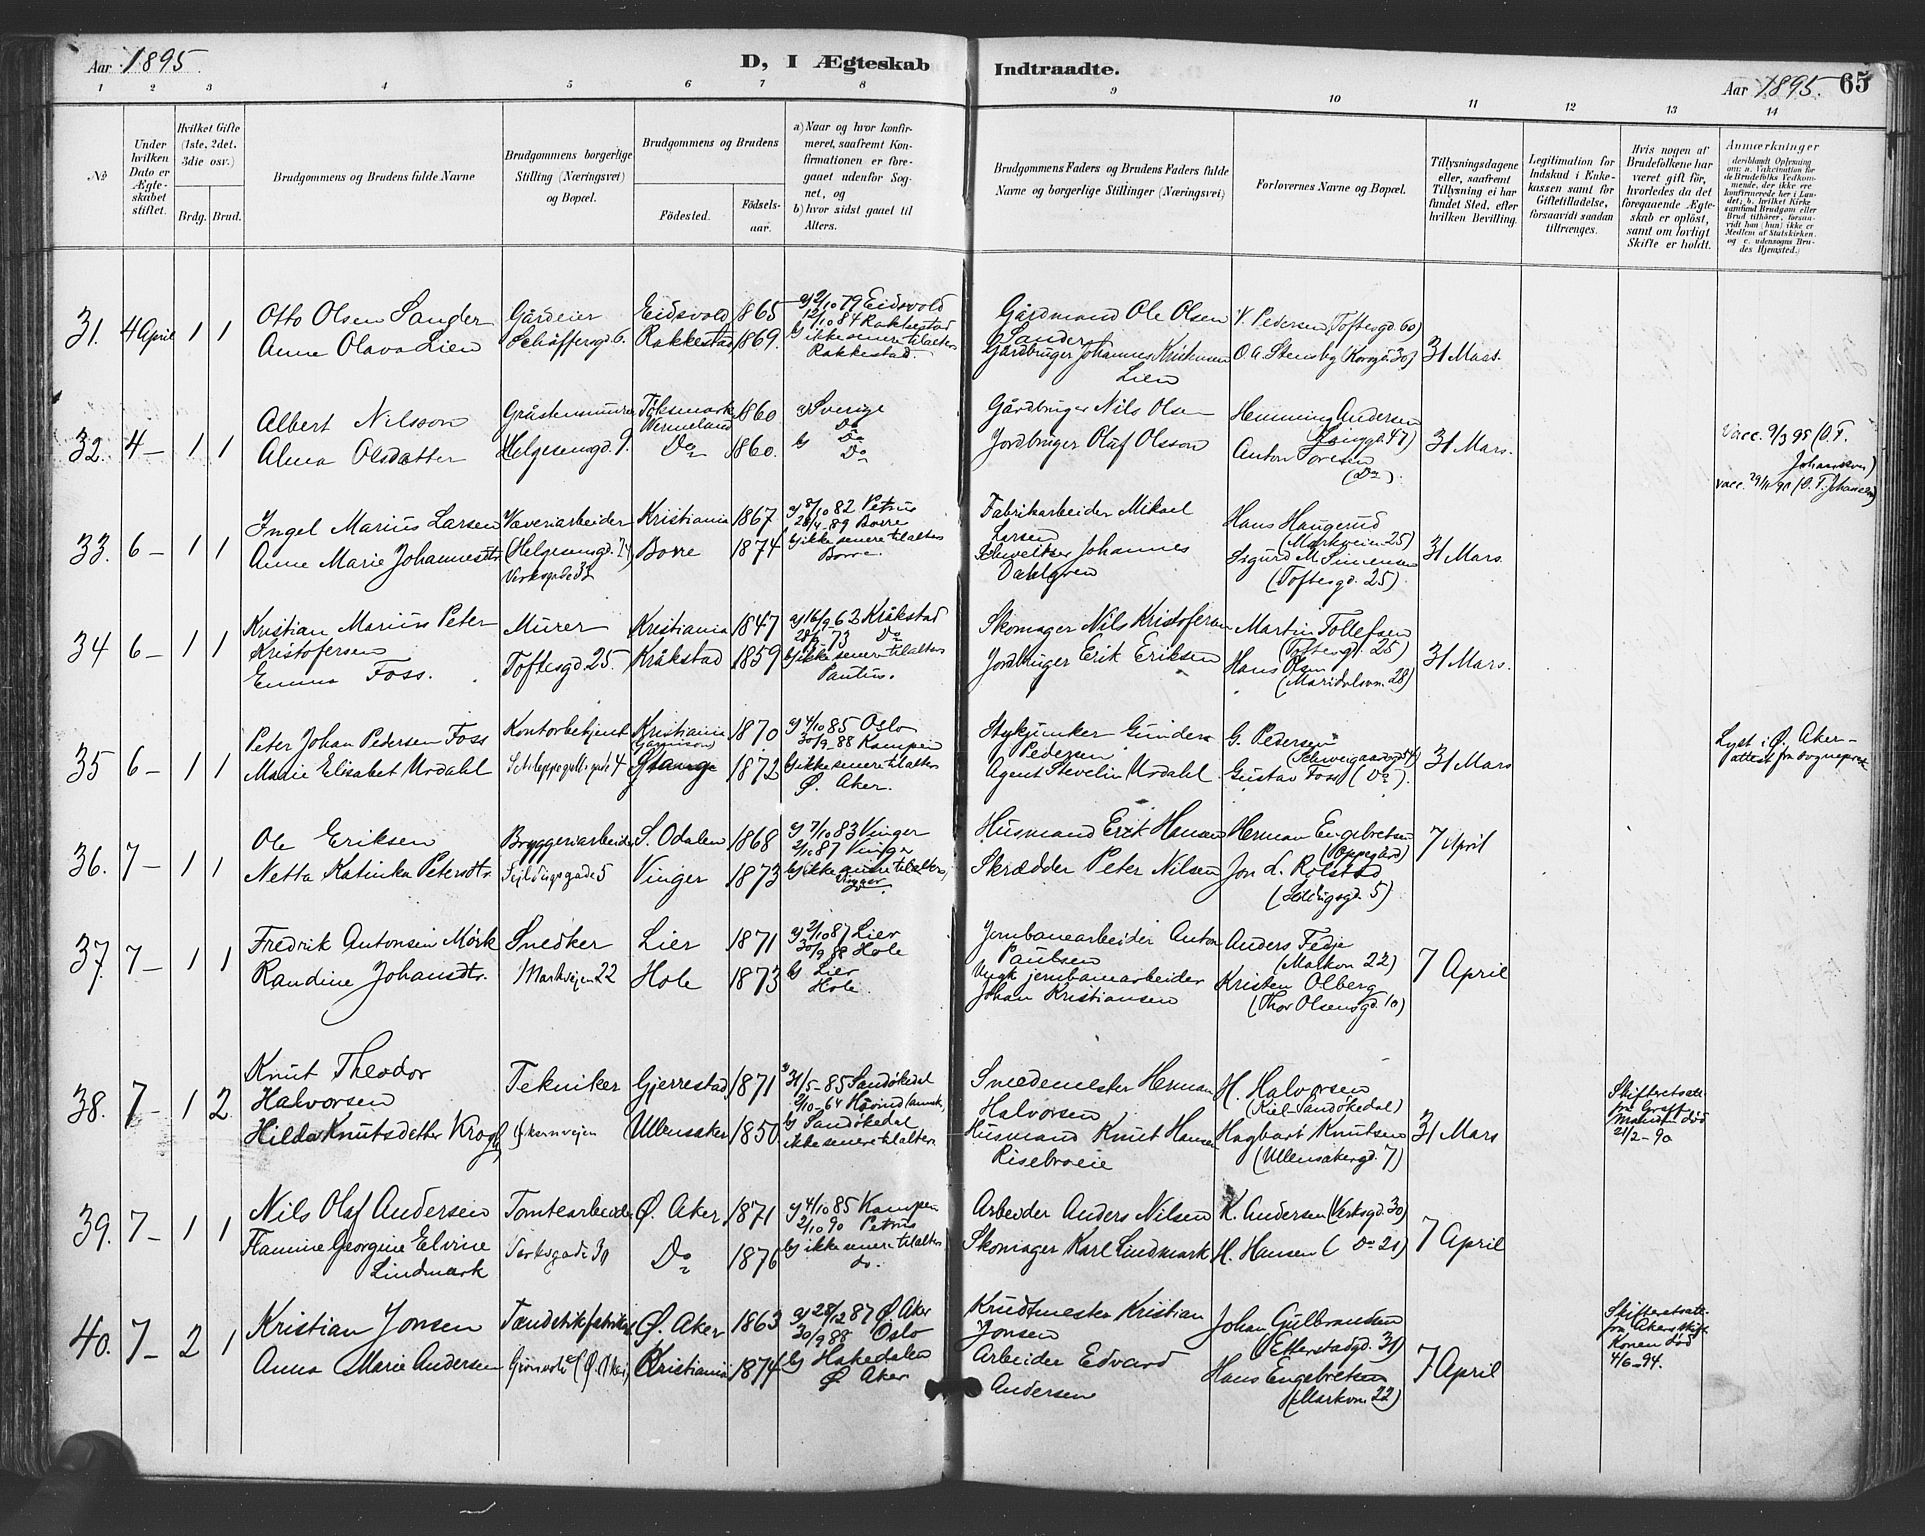 Aar 1895.
D, I Ægteskab Indtraadte.
Aar 1895. 65
1 2 3 4 5 6 7 8 9 10 11 12 13 14
№
Under hvilken Dato er Ægteskabet stiftet.
Hvilket Gifte (1ste, 2det, 3die osv.)
Brdg. Brud.
Brudgommens og Brudens fulde Navne
Brudgommens borgerlige Stilling (Næringsvei) og Bopæl.
Brudgommens og Brudens
Fødested.
Fødselsaar.
a) Naar og hvor konfirmeret, saafremt Konfirmationen er foregaaet udenfor Sognet, og
b) hvor sidst gaaet til Alters.
Brudgommens Faders og Brudens Faders fulde Navne og borgerlige Stillinger (Næringsvei)
Forlovernes Navne og Bopæl.
Tillysningsdagene eller, saafremt Tillysning ei har fundet Sted, efter hvilken Bevilling.
Legitimation for Indskud i Enkekassen samt for Giftetilladelse, forsaavidt saadan tiltrænges.
Hvis nogen af Brudefolkene har været gift før, hvorledes da det foregaaende Ægteskab er opløst, samt om lovligt Skifte er holdt.
Anmærkninger
31. 4 April 1 1
Otto Olsen Sander
Anne Olava Lien
Gårdeier
Schåffersgd 6.
Eidsvold 1865
Rakkestad 1869.
a) 2/10 79 Eidsvold
12/10 84 Rakkestad
b) ikke senere til alters
Rakkestad.
Gårdmand Ole Olsen
Sander
Gårdbruger Johannes Kristiansen
Lien
V. Pedersen (Toftesgd. 60)
O. A. Stensby (Korsgd. 30)
31 Mars.
32. 4 – 1 1
Albert Nilsson
Alma Olsdatter
Gråstensmurer
Helgesensgd. 9.
Töksmark
Wermeland 1860
Do 1860.
a) Sverige
Do
b) Do
Do
Gårdbruger Nils Olsen
Jordbruger Olaf Olsson
Henning Andersen
(Langgd. 47)
Anton Toresen
(Do)
31 Mars.
Vacc. 9/3 95 (O. T.
Johannsen)
33. 6 – 1 1
Ingel Marius Larsen
Anne Marie Johannesdtr
Væveriarbeider
(Helgesensgd. 74)
Verksgade 33
Kristiania 1867
Borre 1874
a) 8/10 82 Petrus
28/4 89 Borre
b) ikke senere til alters
Borre.
Fabrikarbeider Mikael
Larsen
Johannes
Dahlgren
Hans Haugerud
(Markveien 25)
Sigurd M. Simensen
(Toftesgd. 25)
31 Mars.
34 6 – 1 1
Kristian Marius Peter
Kristofersen
Emma Foss.
Murer
Toftesgd. 25
Kristiania 1847
Kråkstad 1859
a) 16/9–62 Kråkstad
73 Do
b) ikke senere til alters
Paulus.
Skomager Nils Kristofersen
Jordbruger Erik Eriksen
Martin Tollefsen
(Toftesgd. 25)
Hans Olsen
(Maridalsvn. 28)
31 Mars.
35 6 – 1 1
Peter Johan Pedersen Foss
Marie Elisabet Urdahl
Kontorbetjent
Schleppegrellsgade 4
Kristiania
(Garnison) 1870
Stange 1872
a) 4/10 85 Oslo
30/9 88 Kampen
b) ikke senere til alters
Ø. Aker.
Stykjunker Gunder
Pedersen
Agent Stevelin Urdahl
G. Pedersen
(Schweigaardsgd 54)
Gustav Foss (Do).
31 Mars
Lyst i Ø. Aker –
attest fra sognepræst
36. 7 – 1 1
Ole Eriksen
Netta Katinka Petersdtr.
Bryggeriarbeider
Seildugsgade 5
S. Odalen 1868
Vinger 1873
a) 7/10 83 Vinger
2/10 87 Vinger
b) ikke senere til alters,
Vinger
Husmand Erik Hansen
Skrædder Peter Nilsen
Herman Engebretsen
(Oppegård)
Jon L. Rolstad
(Seildugsgd. 5)
7 April
37. 7 – 1 1
Fredrik Antonsen Mørk
Randine Johansdtr.
Snedker
Markvejen 22
Lier 1871
Hole 1873
a) 2/10 87 Lier
30/9 88 Hole
b) Lier
Hole.
Jernbanearbeider Anton
Paulsen
Ungk jernbanearbeider
Johan Kristiansen
Anders Fedje
(Markvn 22)
Kristen Olberg
(Thor Olsensgd. 10)
7 April
38. 7 – 1 2
Knut Theodor
Halvorsen
Hilda Knutsdatter Krogh
Tekniker
Økernvejen
Gjerrestad 1871
Ullensaker 1850
a) 31/5–85 Sandøkedal
2/10–64 Hovind
b) Sandøkedal
ikke senere til alters.
Smedemester Herman
Halvorsen
Husmand Knut Hansen
Risebroeie
H. Halvorsen
(Kiil Sandøkedal)
Hagbart Knutsen
(Ullensakergd. 7)
31 Mars
Skifteretsatt.
fra
Manden død
21/2–90
39. 7 – 1 1
Nils Olaf Andersen
Flamine Georgine Elvine
Lindmark
Tomtearbeider
Verksgade 30
Ø. Aker 1871
Do 1876
a) 4/10 85 Kampen
2/10 90 Petrus
b) ikke senere til alters
do.
Arbeider Anders Nilsen
Skomager Karl Lindmark
K. Andersen (Verksgd. 30)
H. Hansen (Do 21)
7 April
40. 7 – 2 1
Kristian Jonsen
Anna Marie Andersen
Tændstikfabrik
(Ø. Aker)
Ø. Aker 1863
Kristiania 1874
a) 28/12 87 Ø. Aker
30/9 88 Oslo
b) Hakedalen
Ø. Aker
Krudtmester Kristian
Jonsen
Arbeider Edvard
Andersen
Johan Gulbrandsen
(Etterstadgd. 31)
Hans Engebretsen
(Markvn. 22)
7 April
Skifteretsatt.
fra Akers skift
Konen død
4/6–94.